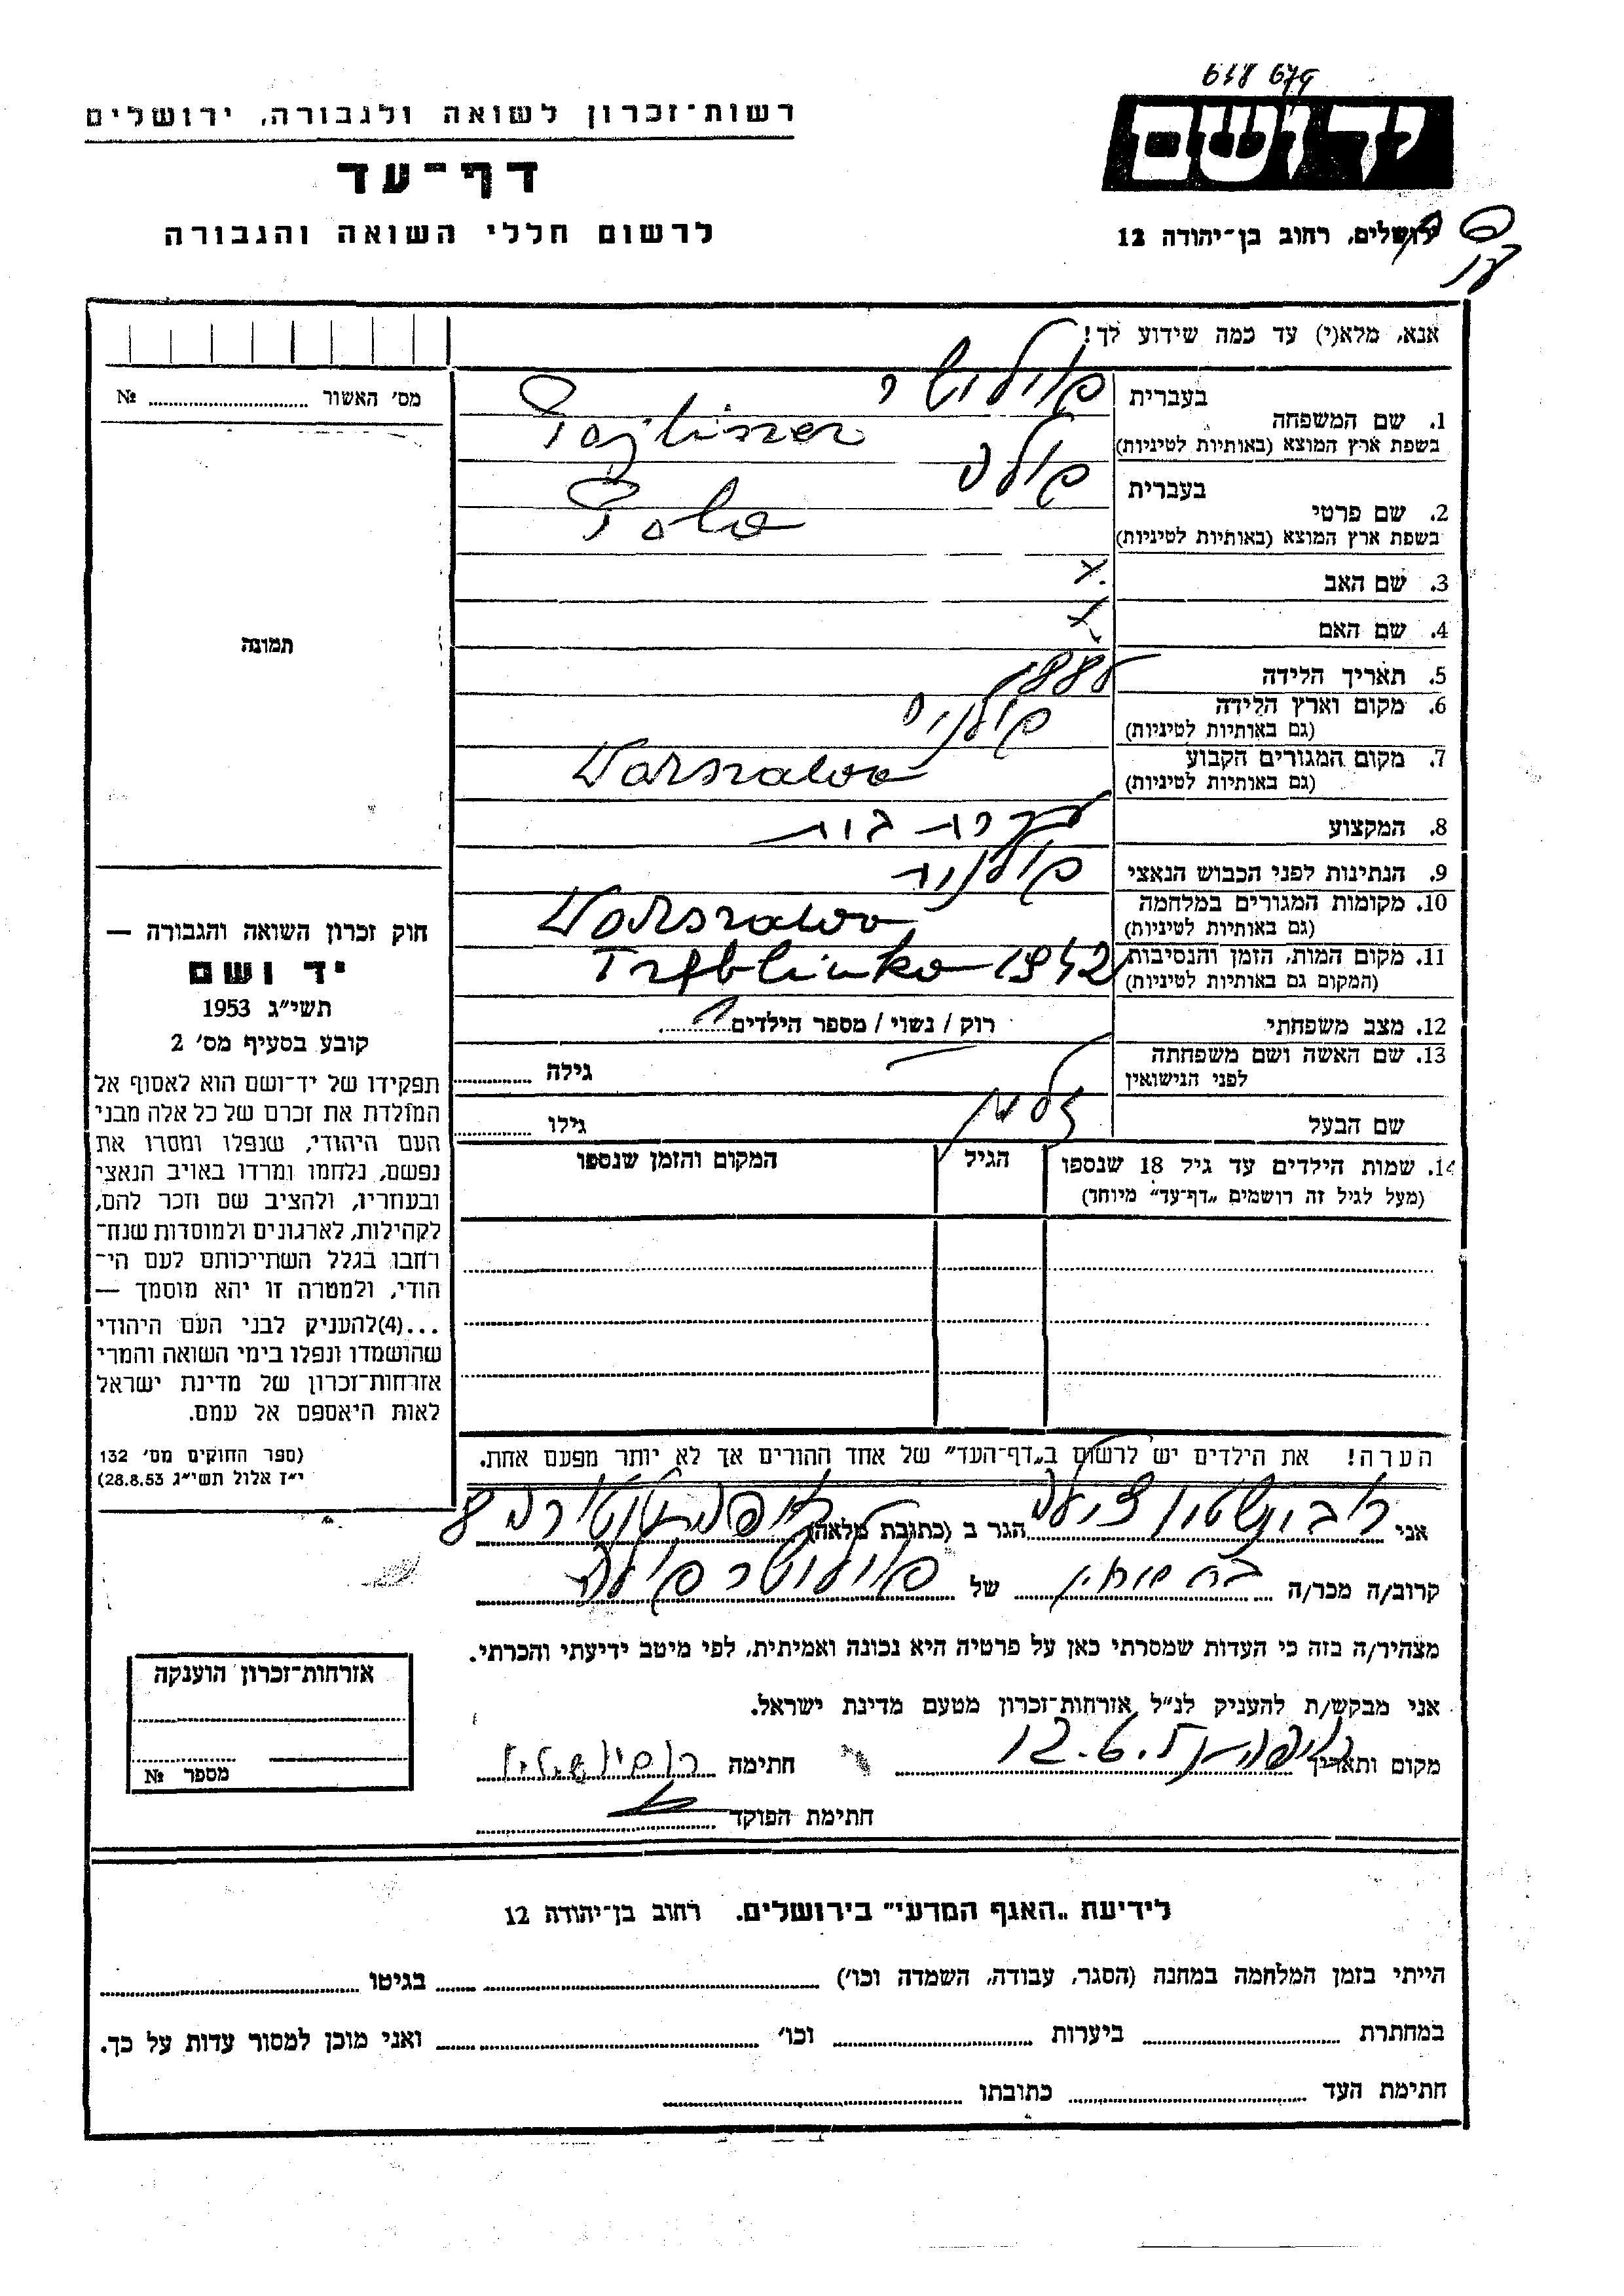 618 679
יד ושם
רשות־זכרון לשואה ולגבורה, ירושלים
דף־עד
לרשום חללי השואה והגבורה
ירושלים, רחוב בן־יהודה 12
אנא, מלא(י) עד כמה שידוע לך!
מס׳ האשור № 
1. שם המשפחה
בעברית
בשפת ארץ המוצא (באותיות לטיניות)
2. שם פרטי
בעברית פולה
בשפת ארץ המוצא (באותיות לטיניות) Pola
3. שם האב
4. שם האם
5. תאריך הלידה 1888
6. מקום וארץ הלידה פולניה
(גם באותיות לטיניות)
7. מקום המגורים הקבוע Warszawa
(גם באותיות לטיניות)
8. המקצוע עקרת בית
9. הנתינות לפני הכבוש הנאצי פולנית
10. מקומות המגורים במלחמה Warszawa
(גם באותיות לטיניות)
11. מקום המות, הזמן והנסיבות Treblinka 1942
(המקום גם באותיות לטיניות)
12. מצב משפחתי רוק / נשוי / מספר הילדים
13. שם האשה ושם משפחתה
לפני הנישואין
גילה
שם הבעל
גילו
14. שמות הילדים עד גיל 18 שנספו
(מעל לגיל זה רושמים „דף־עד״ מיוחד)
הגיל
המקום והזמן שנספו
תמונה
חוק זכרון השואה והגבורה —
יד ושם
תשי״ג 1953
קובע בסעיף מס׳ 2
תפקידו של יד־ושם הוא לאסוף אל
המולדת את זכרם של כל אלה מבני
העם היהודי, שנפלו ומסרו את
נפשם, נלחמו ומרדו באויב הנאצי
ובעוזריו, ולהציב שם וזכר להם,
לקהילות, לארגונים ולמוסדות שנח־
רחבו בגלל השתייכותם לעם הי־
הודי, ולמטרה זו יהא מוסמך —
...(4) להעניק לבני העם היהודי
שהושמדו ונפלו בימי השואה והמרי
אזרחות־זכרון של מדינת ישראל
לאות היאספם אל עמם.
(ספר החוקים מס׳ 132
י״ז אלול תשי״ג 28.8.53)
הערה! את הילדים יש לרשום ב„דף־העד״ של אחד ההורים אך לא יותר מפעם אחת.
אני רובינשטיין צילה הגר ב (כתובת מלאה)
קרוב/ה מכר/ה של
מצהיר/ה בזה כי העדות שמסרתי כאן על פרטיה היא נכונה ואמיתית, לפי מיטב ידיעתי והכרתי.
אני מבקש/ת להעניק לנ״ל אזרחות־זכרון מטעם מדינת ישראל.
מקום ותאריך חתימה
חתימת הפוקד
אזרחות־זכרון הוענקה
מספר №
לידיעת „האגף המדעי״ בירושלים. רחוב בן־יהודה 12
הייתי בזמן המלחמה במחנה (הסגר, עבודה, השמדה וכו׳) בגיטו
במחתרת ביערות וכו׳ ואני מוכן למסור עדות על כך.
חתימת העד כתובתו